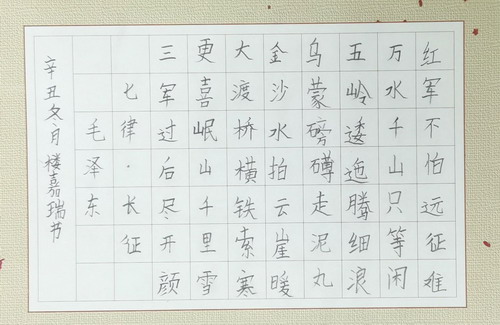 红军不怕远征难
万水千山只等闲
五岭逶迤腾细浪
乌蒙磅礴走泥丸
金沙水拍云崖暖
大渡桥横铁索寒
更喜岷山千里雪
三军过后尽开颜
七律·长征
毛泽东
辛丑冬月楼嘉瑞书